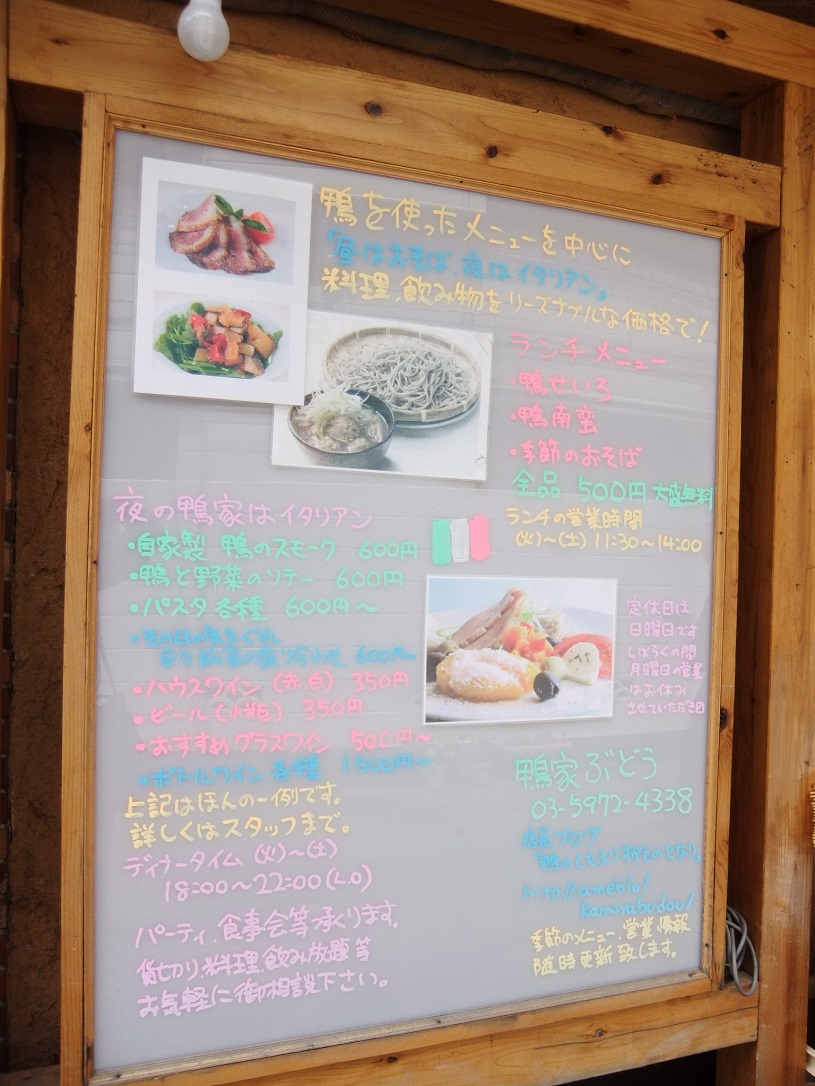 鴨を使ったメニューを中心に
「昼はおそば、夜はイタリアン」
料理、飲み物をリーズナブルな価格で!
ランチメニュー
・鴨せいろ
・鴨南蛮
・季節のおそば
全品 500円 大盛無料
ランチの営業時間
(火)~(土) 11:30~14:00
夜の鴨家はイタリアン
・自家製 鴨のスモーク 600円
・鴨と野菜のソテー 600円
・パスタ各種 600円~
前菜の盛り合わせ 600円~
・ハウスワイン (赤白) 350円
・ビール (小瓶) 350円
・おすすめグラスワイン 500円~
・ボトルワイン 各種 1500円~
上記はほんの一例です。
詳しくはスタッフまで。
ディナータイム (火)~(土)
18:00~22:00(L.O)
パーティ、食事会等承ります。
貸切り、料理、飲み放題等
お気軽に御相談下さい。
定休日は
日曜日です
しばらくの間
月曜日の営業
はお休み
させていただき
鴨家ぶどう
03-5972-4338
店長ブログ
http://ameblo/
kamoyabudou/
季節のメニュー、営業情報
随時更新致します。